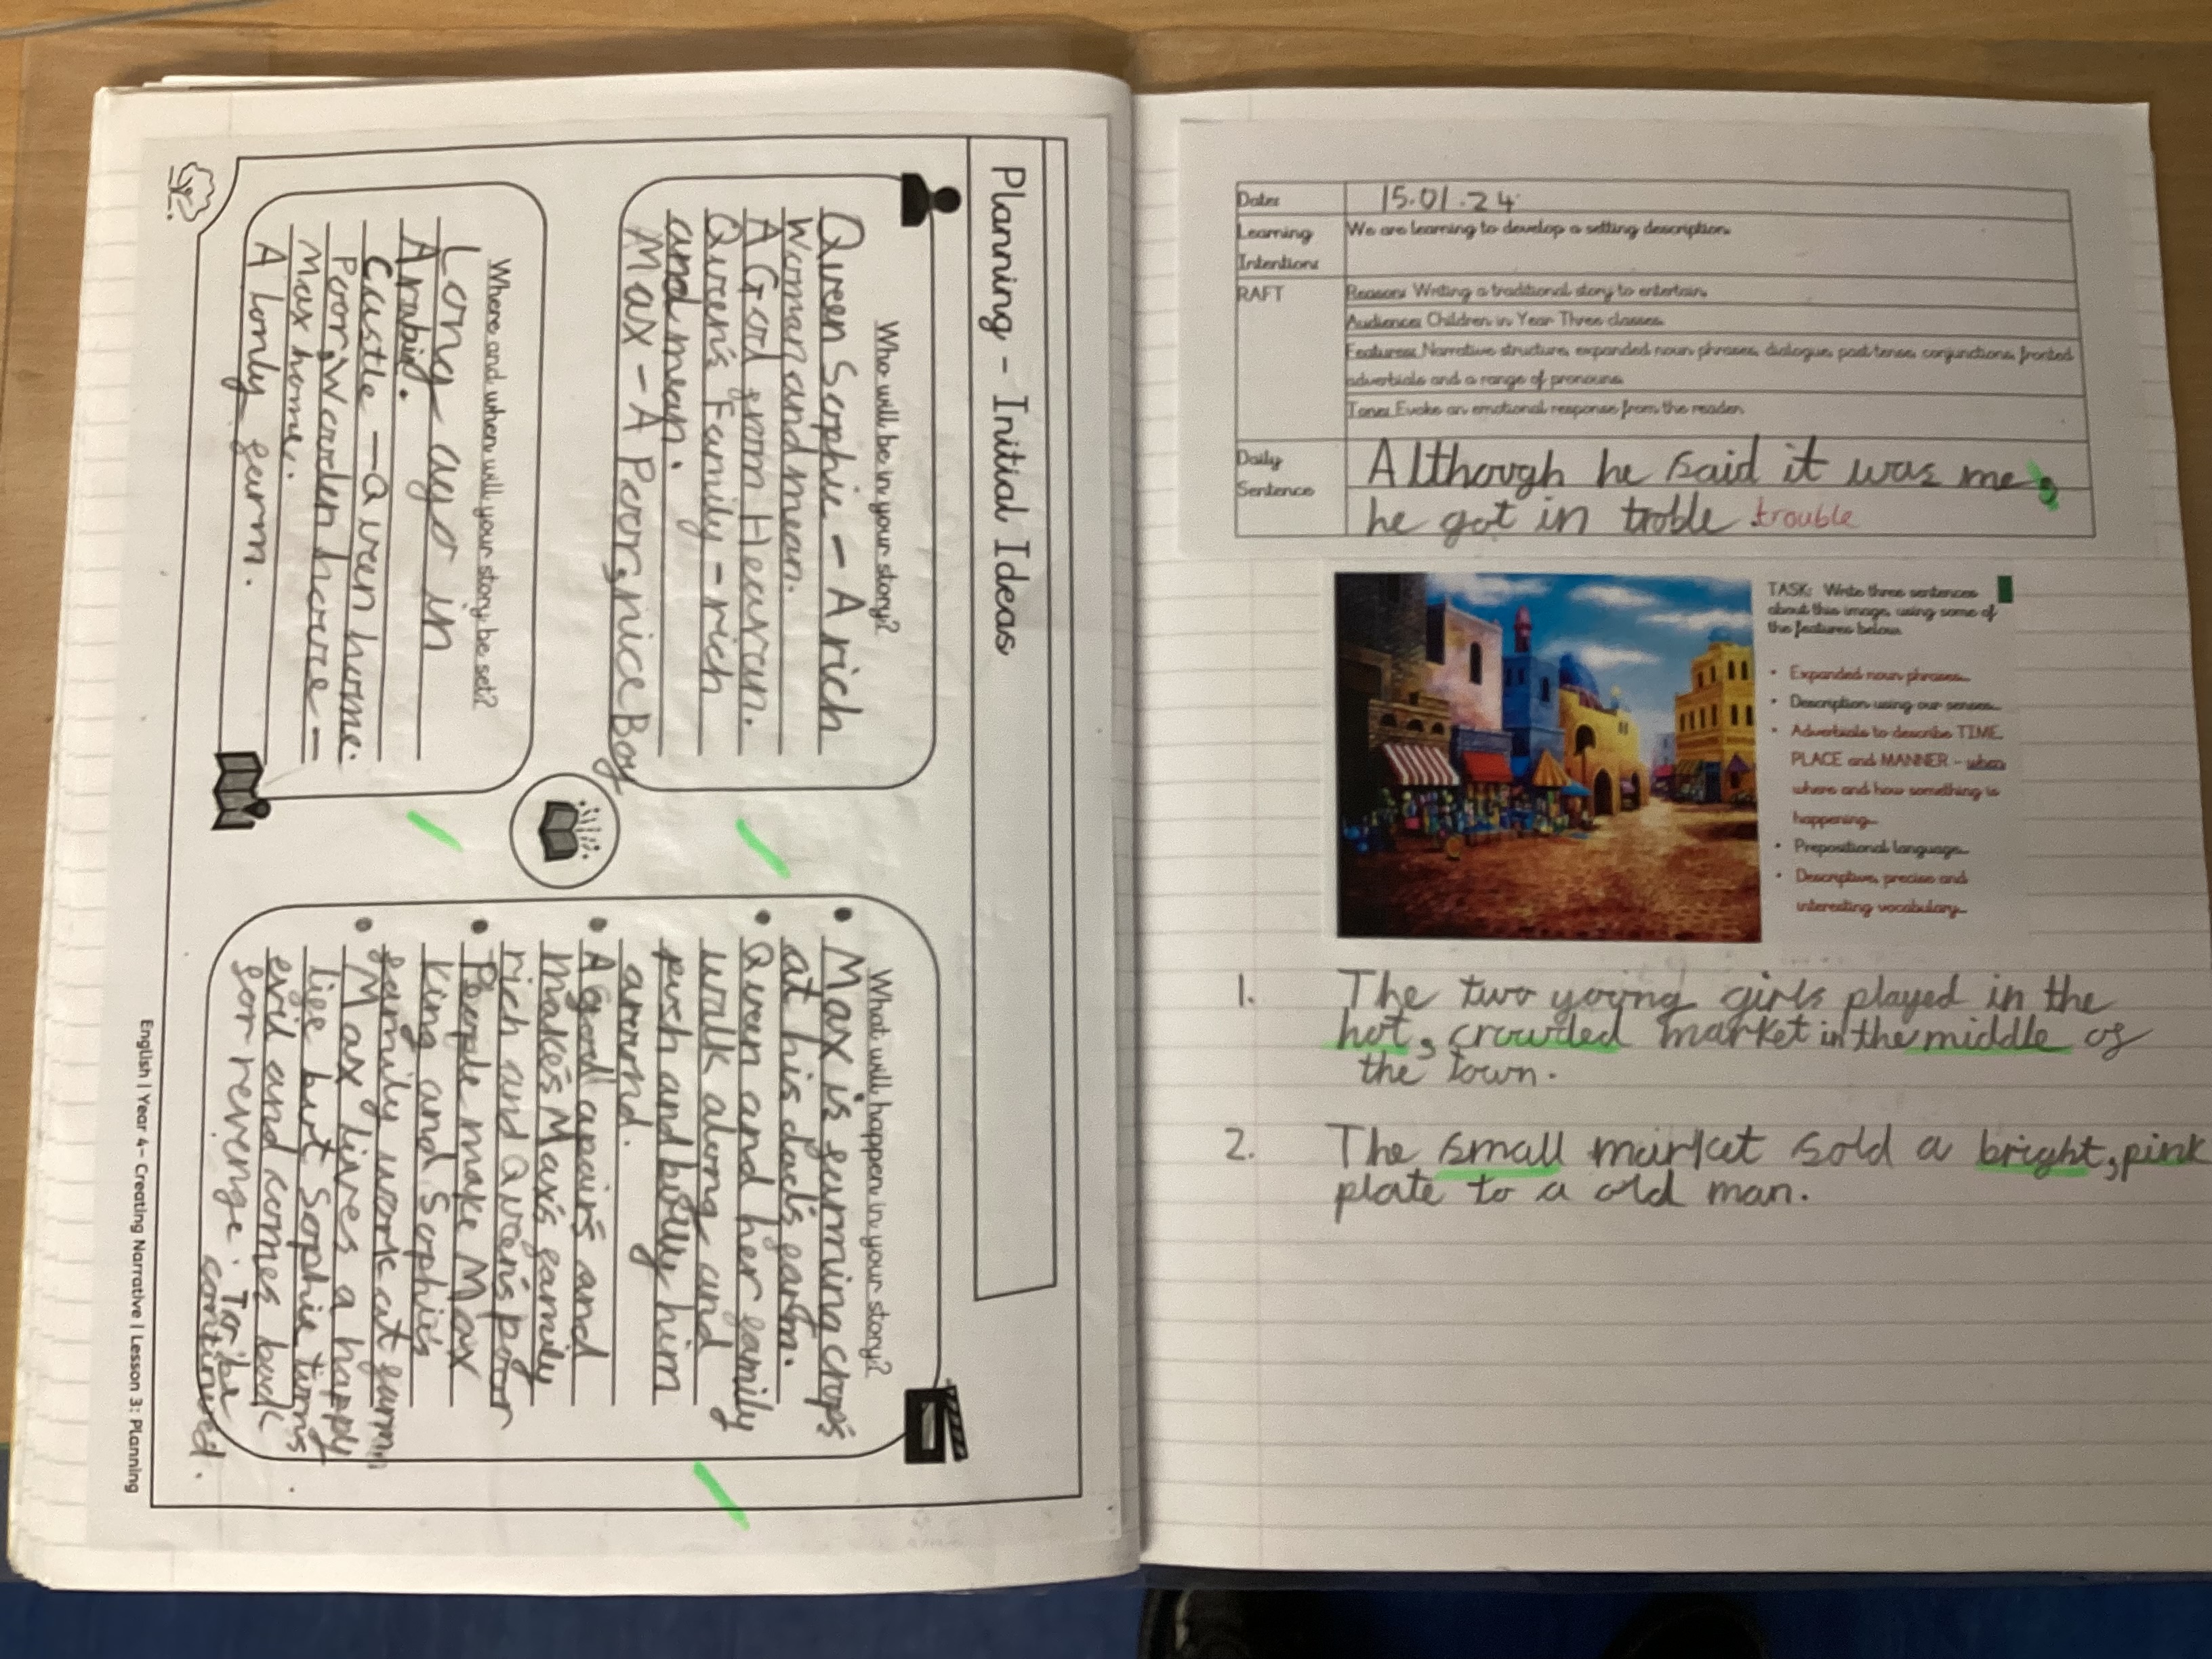 Planning - Initial Ideas
Who will be in your story?
Queen Sophie - A rich
Woman and mean.
A Good from Heavan.
Queen's Family - rich
and mean.
Max - A Poor, nice Boy
Where and when will your story be set?
Long ago in
Arabia.
Castle - Queen home.
Poor, Wooden house -
Max home.
A lonly farm.
What will happen in your story?
• Max is farming crop's
at his dad's farm.
• Queen and her family
walk along and
push and bully him
around.
• A good apair's and
make's Max's family
rich and Queen's poor
• People make Max
king and Sophie's
family work at farm
• Max lives a happy
life but Sophie turns
evil and comes back
for revenge. To be
continued.
English | Year 4 - Creating Narrative | Lesson 3: Planning
Date: 15.01.24
Learning Intention: We are learning to develop a setting description.
RAFT
Reason: Writing a traditional story to entertain.
Audience: Children in Year Three classes.
Features: Narrative structure, expanded noun phrases, dialogue, past tense, conjunctions, fronted
adverbials and a range of pronouns.
Tone: Evoke an emotional response from the reader.
Daily Sentence
Although he said it was me,
he got in troble. trouble
TASK: Write three sentences
about this image, using some of
the features below.
• Expanded noun phrases...
• Description using our senses...
• Adverbials to describe TIME,
PLACE and MANNER - when
where and how something is
happening...
• Prepositional language...
• Descriptive, precise and
interesting vocabulary...
1. The two young girls played in the
hot, crowded market in the middle of
the town.
2. The small market sold a bright, pink
plate to a old man.